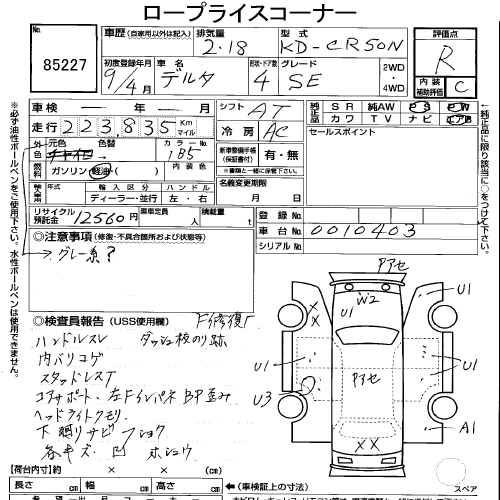 ロープライスコーナー
85227
車歴 (自家用以外は記入)
排気量
型式
評価点
2.18
KD-CR50N
R
初度登録年月
車名
形状・ドア数
グレード
2WD
・
4WD
9/4月
デルタ
4
SE
内装
補助評価
C
車検 ー 年 ー 月
シフト
AT
純正品
SR
純AW
PS
PW
カワ
TV
ナビ
エアB
走行 223,835 Km
マイル
冷房
AC
セールスポイント
外色
元色
色替
カラーNo.
185
新車整備手帳
(保証書付)
有・無
燃料
ガソリン・軽油( )
内装色
※書類と一緒に保管して下さい。
輸入車
年式
輸入区分
ハンドル
ディーラー・並行
左・右
名義変更期限
月 日
リサイクル
預託金
12560円
乗車定員
人
積載量
t
登録No.
車台No.
0010403
シリアルNo.
◎注意事項 (修復・不具合箇所および状態等)
→グレー系?
◎検査員報告 (USS使用欄)
F修復
ハンドルスレ ダッシュ板のり跡
内バリコゲ
スタッドレスT
コアサポート、左Fインパネ BP歪み
ヘッドライトクモリ
下廻りサビ フショク
各キズ 凹 ホシュウ
アセ
W2
U1
XX
U1
U1
アセ
U3
A1
XX
スペア
【荷台内寸】約 × ×
長さ (cm) 幅 (cm) 高さ (cm)
←(車検証上の寸法)
※必ず油性ボールペンをご使用下さい。水性ボールペンは使用できません。